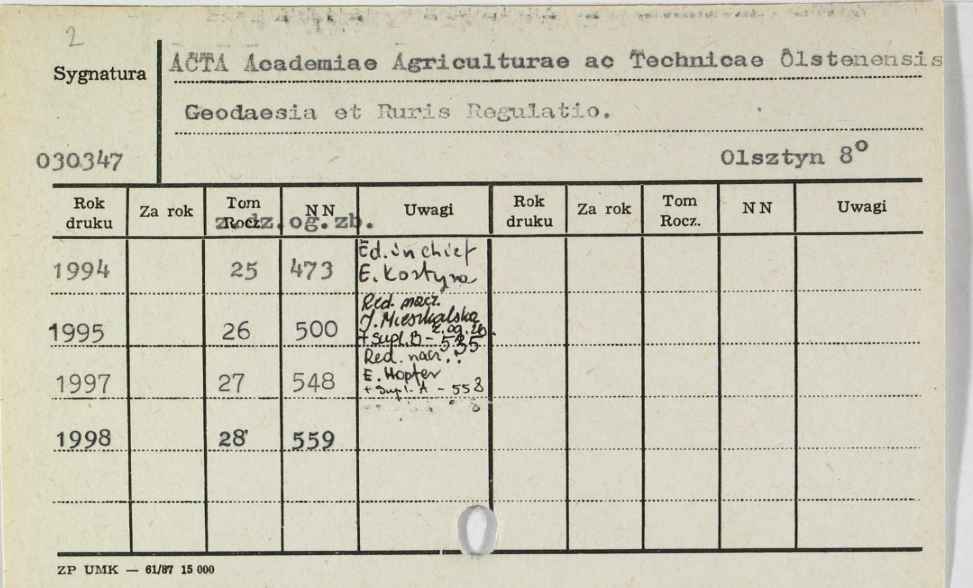 2
Sygnatura
ACTA Academiae Agriculturae ac Technicae Olstenensis
Geodaesia et Ruris Regulatio.
030347
Olsztyn 8°
Rok druku Za rok Tom Rocz. NN Uwagi Rok druku Za rok Tom Rocz. NN Uwagi
z dz.og.zb.
1994 25 473 Ed. in chief E. Kostyra
1995 26 500 Red. nacz. J. Mieszkalska z.og.zb. + Supl. B - 535
1997 27 548 Red. nacz.: E. Hopfer + Supl. A - 558
1998 28 559
ZP UMK — 61/87 15 000